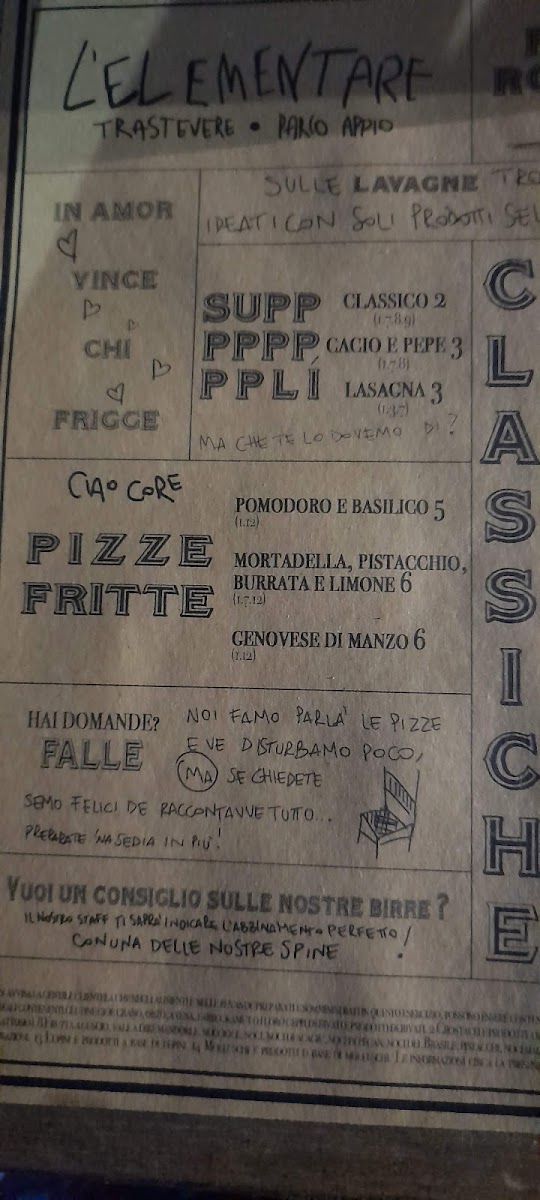 L'ELEMENTARE
TRASTEVERE • PARCO APPIO
SULLE LAVAGNE TRO
IDEATI CON SOLI PRODOTTI SEL
IN AMOR
VINCE
CHI
FRIGGE
SUPP
PPPP
PPLÍ
CLASSICO 2
(1.7.8.9)
CACIO E PEPE 3
(1.7.8)
LASAGNA 3
MA CHE TE LO DOVEMO DI?
CIAO CORE
PIZZE
FRITTE
POMODORO E BASILICO 5
(1.12)
MORTADELLA, PISTACCHIO,
BURRATA E LIMONE 6
(1.7.12)
GENOVESE DI MANZO 6
(1.12)
CLASSICHE
HAI DOMANDE?
FALLE
NOI FAMO PARLA' LE PIZZE
E VE DISTURBAMO POCO,
MA SE CHIEDETE
SEMO FELICI DE RACCONTAVVE TUTTO...
PREPARATE 'NA SEDIA IN PIU'!
VUOI UN CONSIGLIO SULLE NOSTRE BIRRE?
IL NOSTRO STAFF TI SAPRA' INDICARE L'ABBINAMENTO PERFETTO
CON UNA DELLE NOSTRE SPINE!